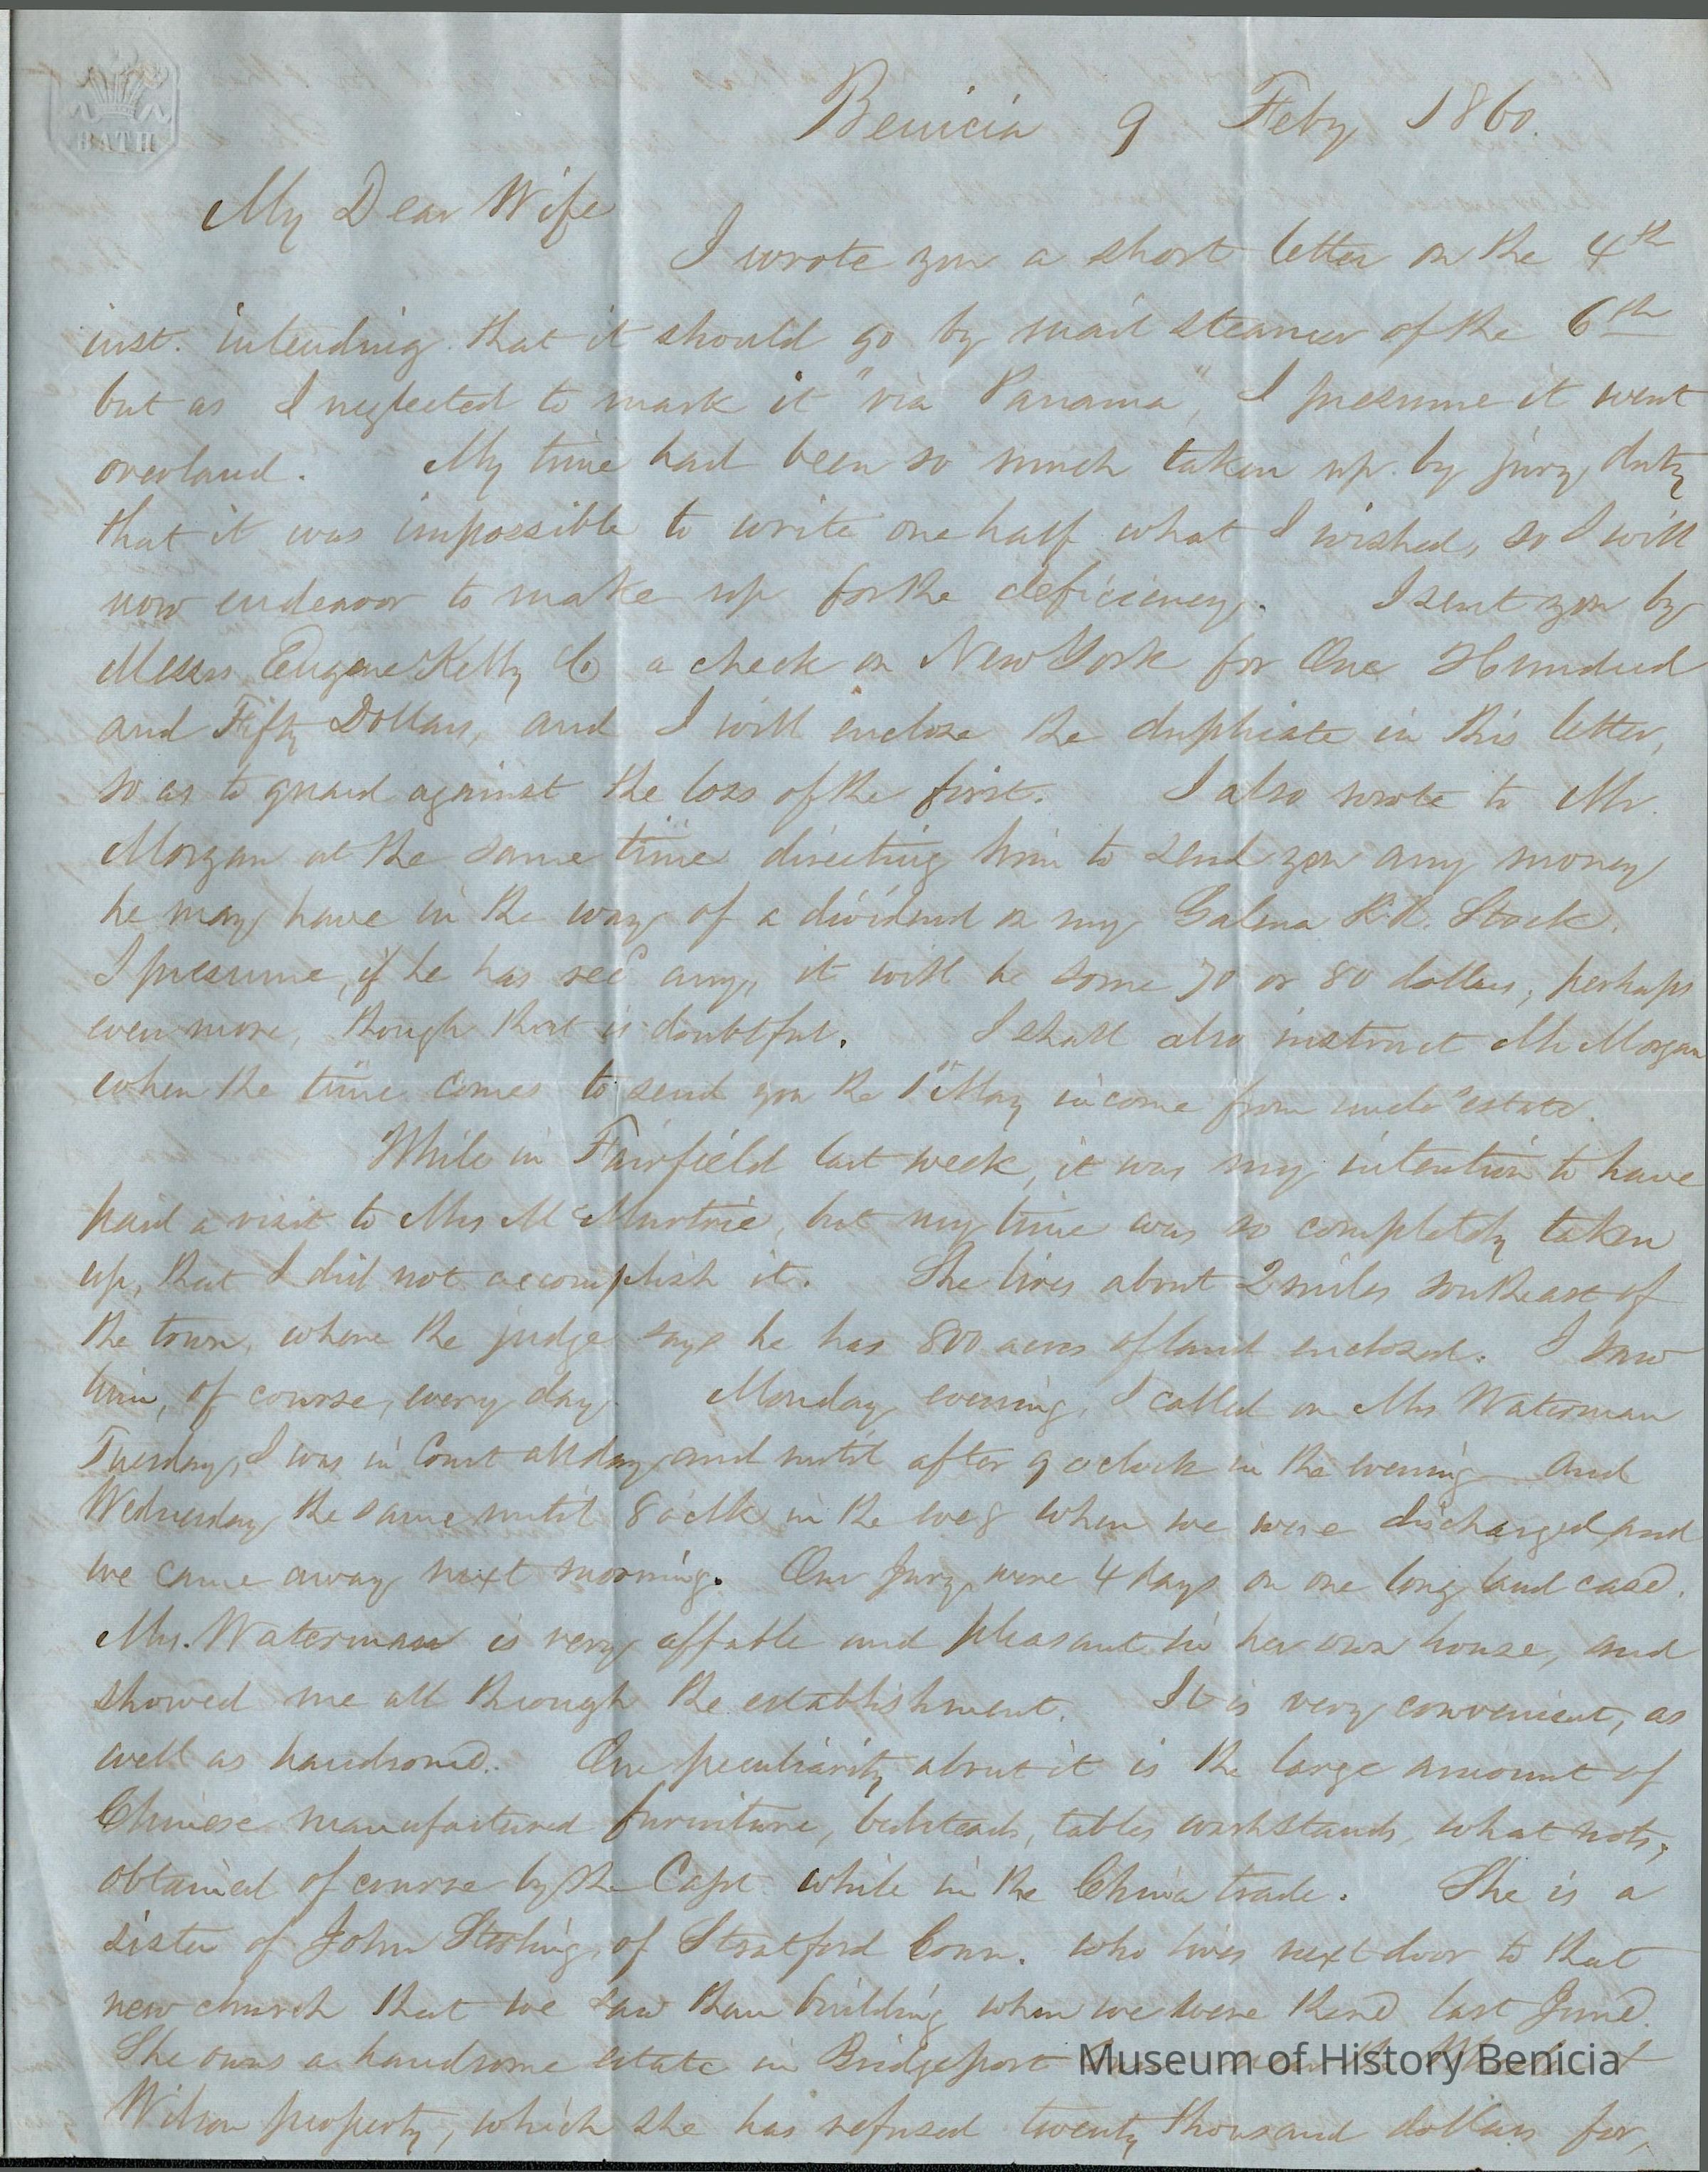 BATH
Benicia 9 Feby 1860.
My Dear Wife
I wrote you a short letter on the 4th
inst. intending that it should go by mail steamer of the 6th
but as I neglected to mark it "via Panama", I presume it went
overland. My time had been so much taken up by jury duty
that it was impossible to write one half what I wished, so I will
now endeavor to make up for the deficiency. I sent you by
Messrs Eugene Kelly & Co a check on New York for One Hundred
and Fifty Dollars, and I will enclose the duplicate in this letter,
so as to guard against the loss of the first. I also wrote to Mr.
Morgan at the same time directing him to send you any money
he may have in the way of a dividend on my Galena R.R. Stock.
I presume, if he has recd any, it will be some 70 or 80 dollars, perhaps
even more, though that is doubtful. I shall also instruct Mr Morgan
when the time comes to send you the 1st May income from estate.
While in Fairfield last week, it was my intention to have
paid a visit to Mrs McMurtrie, but my time was so completely taken
up, that I did not accomplish it. She lives about 2 miles southeast of
the town, where the judge says he has 800 acres of land enclosed. I saw
him, of course, every day. Monday evening, I called on Mrs Waterman
Tuesday, I was in Court all day and until after 9 oclock in the evening and
Wednesday the same until 8 oclk in the eveg when we were discharged and
we came away next morning. Our Jury were 4 days on one long land case.
Mrs. Waterman is very affable and pleasant in her own house, and
showed me all through the establishment. It is very convenient, as
well as handsome. One peculiarity about it is the large amount of
Chinese manufactured furniture, bedsteads, tables washstands, what nots,
obtained of course by the Capt while in the China trade. She is a
sister of John Sterling, of Stratford Conn. who lives next door to that
new church that we saw them building when we were there last June.
She owns a handsome estate in Bridgeport
Museum of History Benicia
Wilson property, which she has refused twenty thousand dollars for,